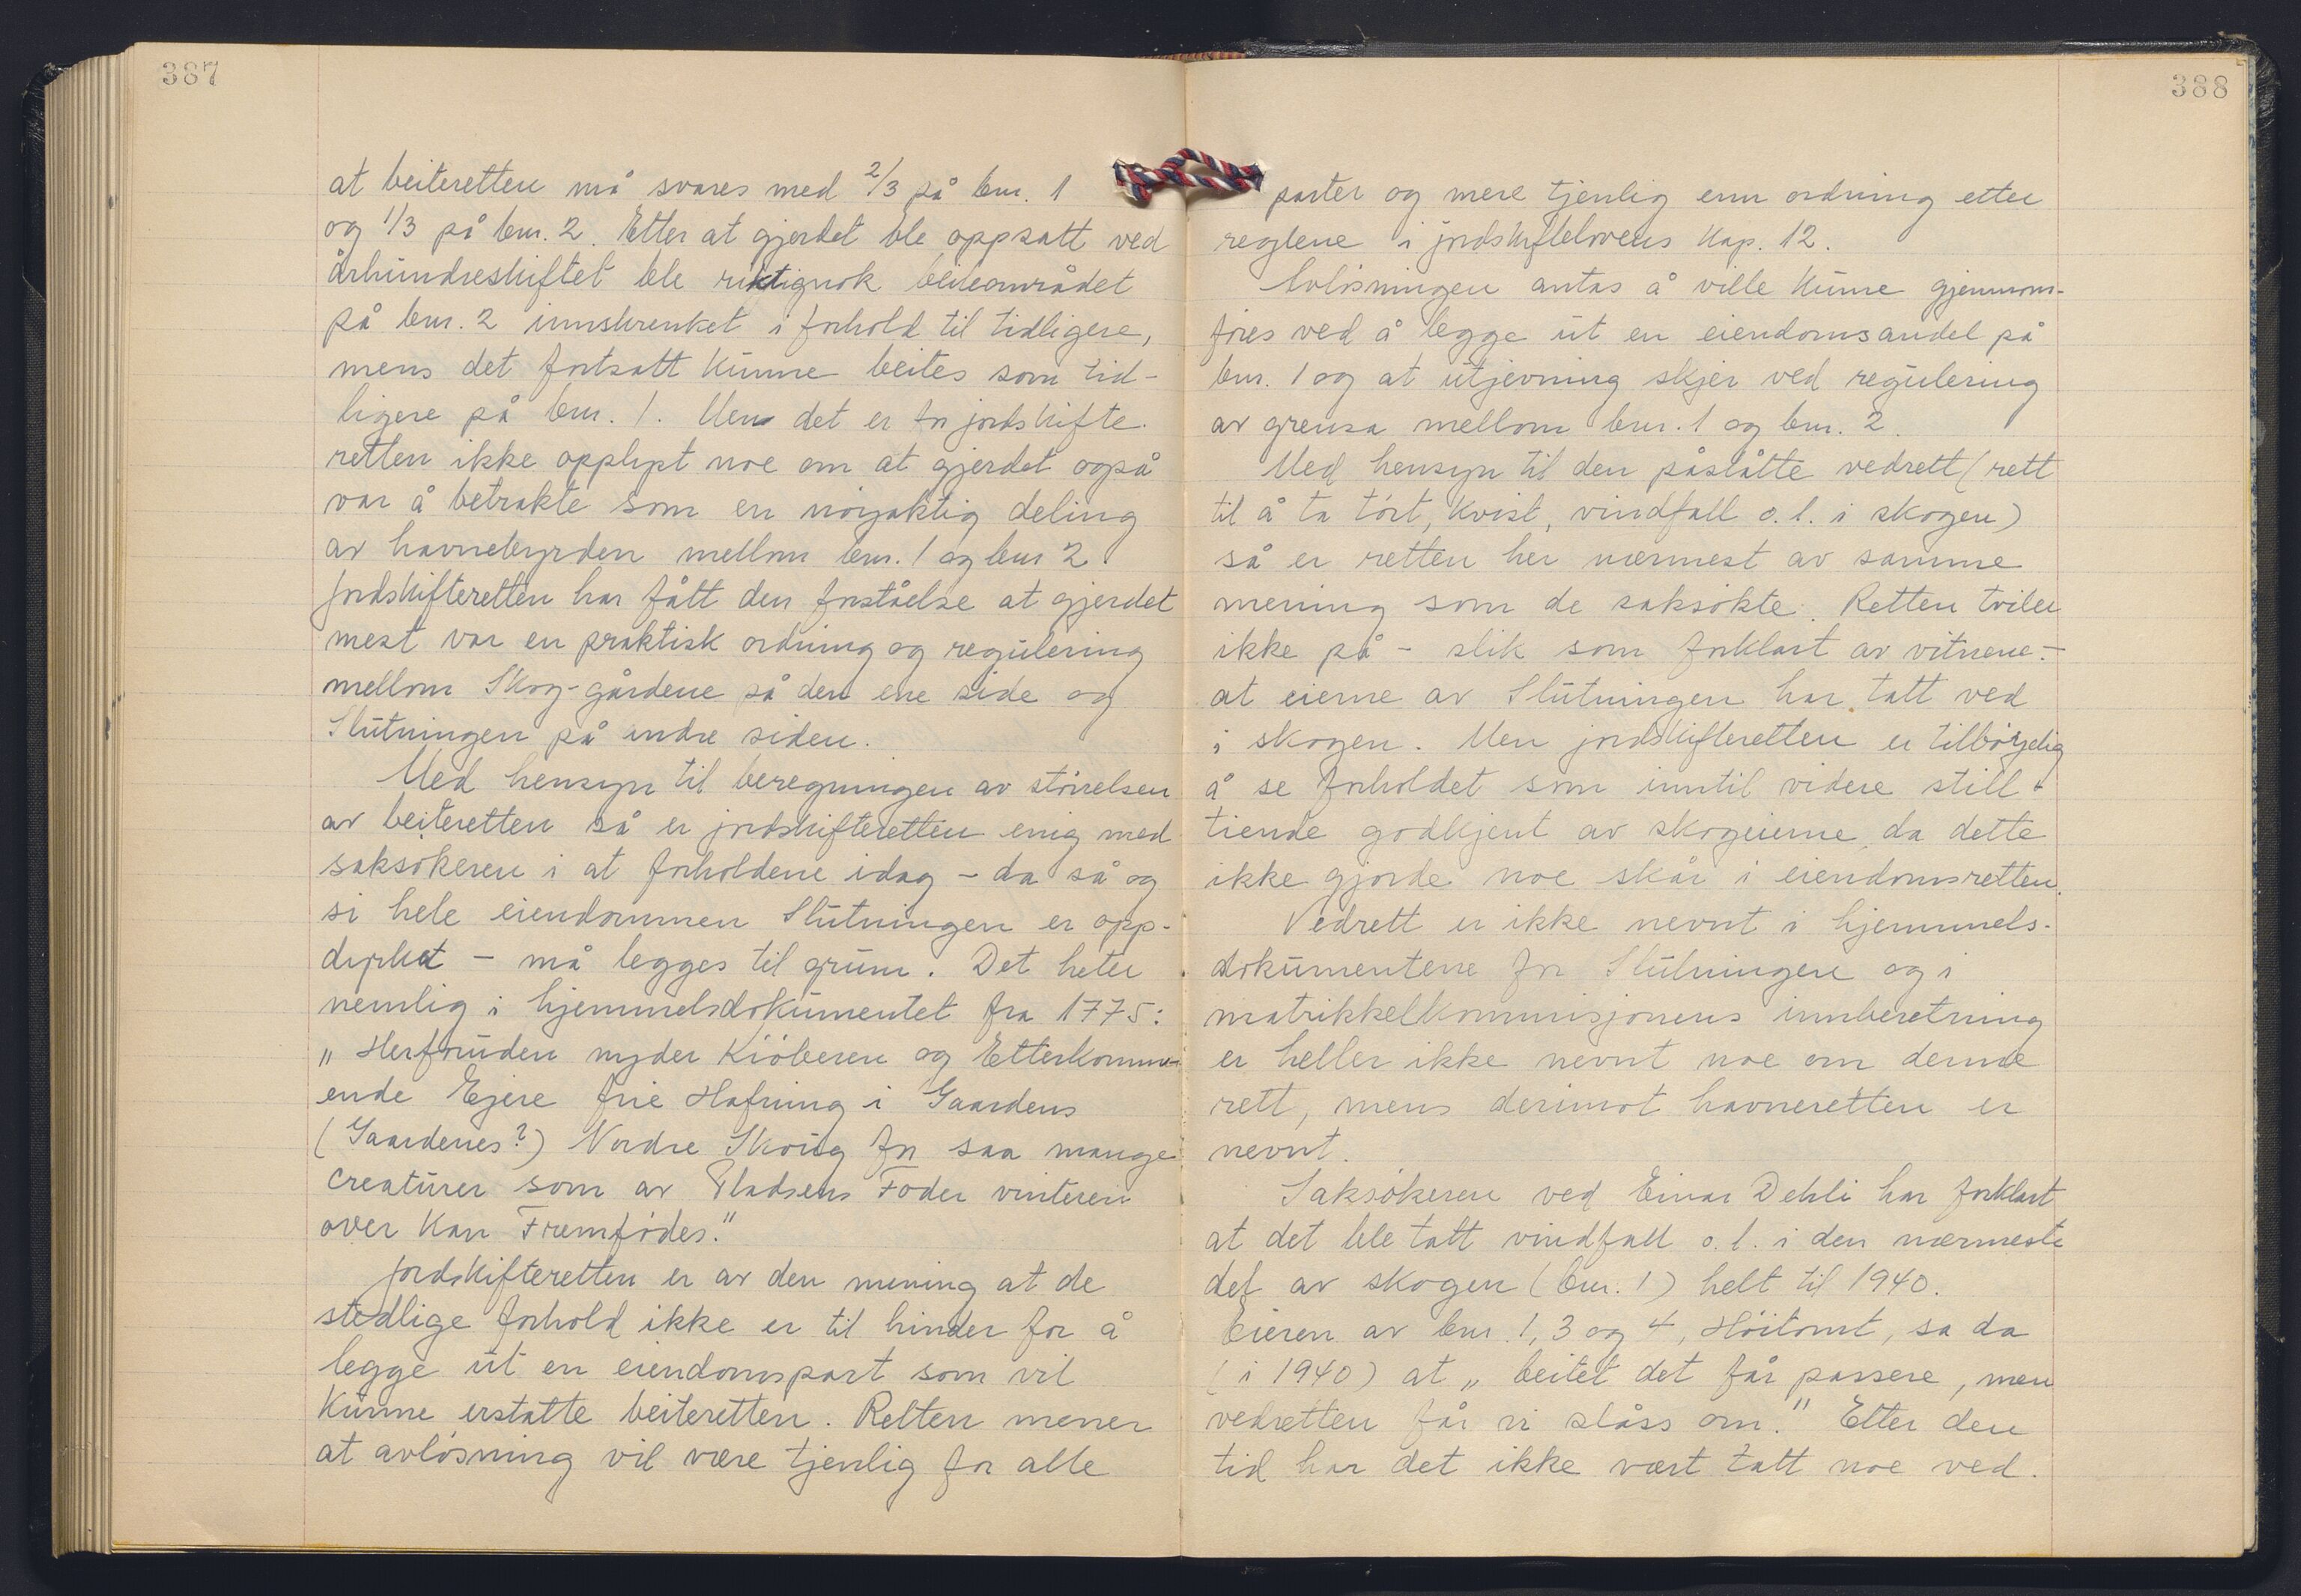 387
at beiteretten må svares med 2/3 på bnr. 1
og 1/3 på bnr. 2. Etter at gjerdet ble oppsatt ved
århundreskiftet ble riktignok beiteområdet
på bnr. 2 innskrenket i forhold til tidligere,
mens det fortsatt kunne beites som tid-
ligere på bnr. 1. Men det er for jordskifte-
retten ikke opplyst noe om at gjerdet også
var å betrakte som en nöyaktig deling
av havnebyrden mellom bnr. 1 og bnr 2.
Jordskifteretten har fått den forståelse at gjerdet
mest var en praktisk ordning og regulering
mellom Skog-gårdene på den ene side og
Slutningen på andre siden.
Med hensyn til beregningen av störrelsen
av beiteretten så er jordskifteretten enig med
saksökeren i at forholdene idag - da så og
si hele eiendommen Slutningen er opp-
dyrket - må legges til grunn. Det heter
nemlig i hjemmelsdokumentet fra 1775:
„Herforuden nyder Kiöberen og Etterkomm-
ende Ejere frie Hafning i Gaardens
(Gaardenes?) Nordre Skoug for saa mange
Creaturer som av Pladsens Foder vinteren
over kan Fremfödes."
Jordskifteretten er av den mening at de
stedlige forhold ikke er til hinder for å
legge ut en eiendomspart som vil
kunne erstatte beiteretten. Retten mener
at avlösning vil være tjenlig for alle
388
parter og mere tjenlig enn ordning etter
reglene i jordskiftelovens kap. 12.
Avlösningen antas å ville kunne gjennom-
föres ved å legge ut en eiendomsandel på
bnr. 1 og at utjevning skjer ved regulering
av grensa mellom bnr. 1 og bnr. 2.
Med hensyn til den påståtte vedrett (rett
til å ta tört, kvist, vindfall o.l. i skogen)
så er retten her nærmest av samme
mening som de saksökte. Retten tviler
ikke på - slik som forklart av vitnene -
at eierne av Slutningen har tatt ved
i skogen. Men jordskifteretten er tilböyelig
å se forholdet som inntil videre still-
tiende godkjent av skogeierne, da dette
ikke gjorde noe skår i eiendomsretten.
Vedrett er ikke nevnt i hjemmels-
dokumentene for Slutningen og i
matrikkelkommisjonens innberetning
er heller ikke nevnt noe om denne
rett, mens derimot havneretten er
nevnt.
Saksökeren ved Einar Dehli har forklart
at det ble tatt vindfall o.l. i den nærmeste
del av skogen (bnr. 1) helt til 1940.
Eieren av bnr. 1, 3 og 4, Höitomt, sa da
(i 1940) at „beitet det får passere, men
vedretten får vi slåss om." Etter den
tid har det ikke vært tatt noe ved.